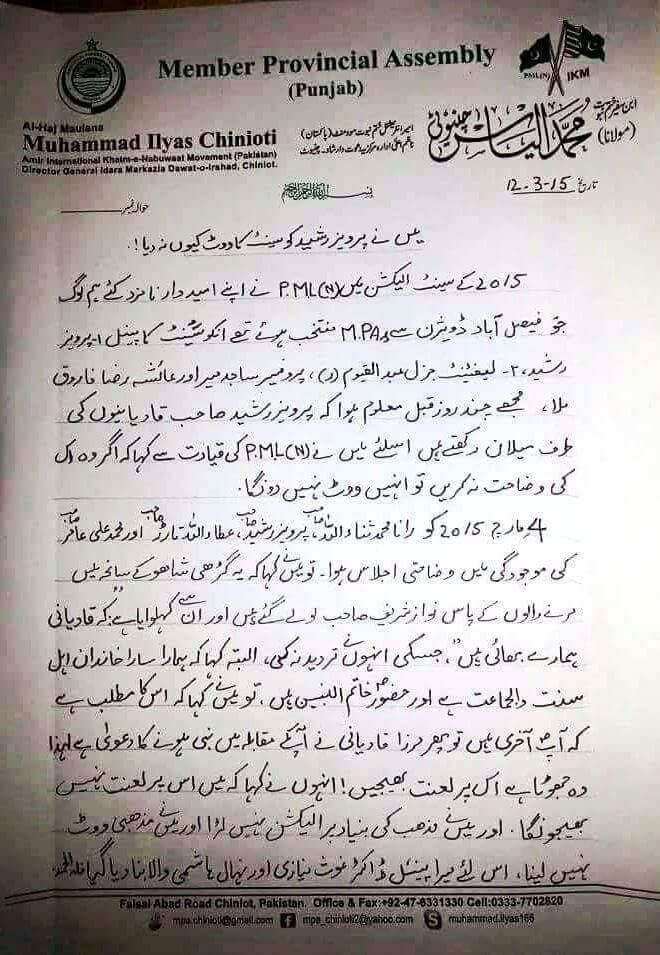 Member Provincial Assembly
(Punjab)
PML(N) IKM
Al-Haj Maulana
Muhammad Ilyas Chinioti
Amir International Khatm-e-Nabuwaat Movement (Pakistan)
Director General Idara Markazia Dawat-o-Irshad, Chiniot.
امیر انٹرنیشنل ختم نبوت موومنٹ (پاکستان)
ناظم اعلیٰ ادارہ مرکزیہ دعوت و ارشاد۔ چنیوٹ
ابن سفیر ختم نبوت
(مولانا) محمد الیاس چنیوٹی
تاریخ 12-3-15
بسم اللہ الرحمن الرحیم
حوالہ نمبر
میں نے پرویز رشید کو سینٹ کا ووٹ کیوں نہ دیا!۔
2015 کے سینٹ الیکشن میں P.M.L(N) نے اپنے امیدوار نامزد کئے ہم لوگ
جو فیصل آباد ڈویژن سے M.PAs منتخب ہوئے تھے انکو سینٹ کا پینل 1۔ پرویز
رشید، 2۔ لیفٹینٹ جنرل عبدالقیوم (ر)، پروفیسر ساجد میر اور عائشہ رضا فاروق
ملا، مجھے چند روز قبل معلوم ہوا کہ پرویز رشید صاحب قادیانیوں کی
طرف میلان رکھتے ہیں اسلئے میں نے P.ML(N) کی قیادت سے کہا کہ اگر وہ اس
کی وضاحت نہ کریں تو انہیں ووٹ نہیں دونگا۔
4 مارچ 2015 کو رانا محمد ثناء اللہ صاحب، پرویز رشید صاحب، عطاء اللہ تارڑ صاحب اور محمد علی صاحب
کی موجودگی میں وضاحتی اجلاس ہوا۔ تو میں نے کہا کہ یہ گڑھی شاھو کے سانحہ میں
مرنے والوں کے پاس نواز شریف صاحب کو لے گئے ہیں اور ان سے کہلوایا ہے: "کہ قادیانی
ہمارے بھائی ہیں"، جسکی انہوں نے تردید نہ کی، البتہ کہا کہ ہمارا سارا خاندان اہل
سنت والجماعت ہے اور حضورؐ خاتم النبیین ہیں، تو میں نے کہا کہ اس کا مطلب ہے
کہ آپؐ آخری ہیں تو پھر مرزا قادیانی نے آپؐ کے مقابلہ میں نبی ہونے کا دعویٰ ہے لہذا
وہ جھوٹا ہے اس پر لعنت بھیجیں! انہوں نے کہا کہ میں اس پر لعنت نہیں
بھیجونگا۔ اور میں نے مذھب کی بنیاد پر الیکشن نہیں لڑا اور میں نے مذھبی ووٹ
نہیں لینا، اس لئے میرا پینل ڈاکٹر غوث نیازی اور نہال ہاشمی والا بنا دیا گیا
Faisal Abad Road Chiniot, Pakistan. Office & Fax:+92-47-6331330 Cell:0333-7702820
mpa.chinioti@gmail.com mpa_chinioti2@yahoo.com muhammad.ilyas166